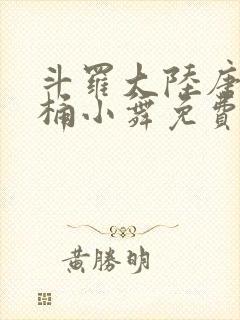 斗羅大陸唐
桶小舞免費
黃勝明